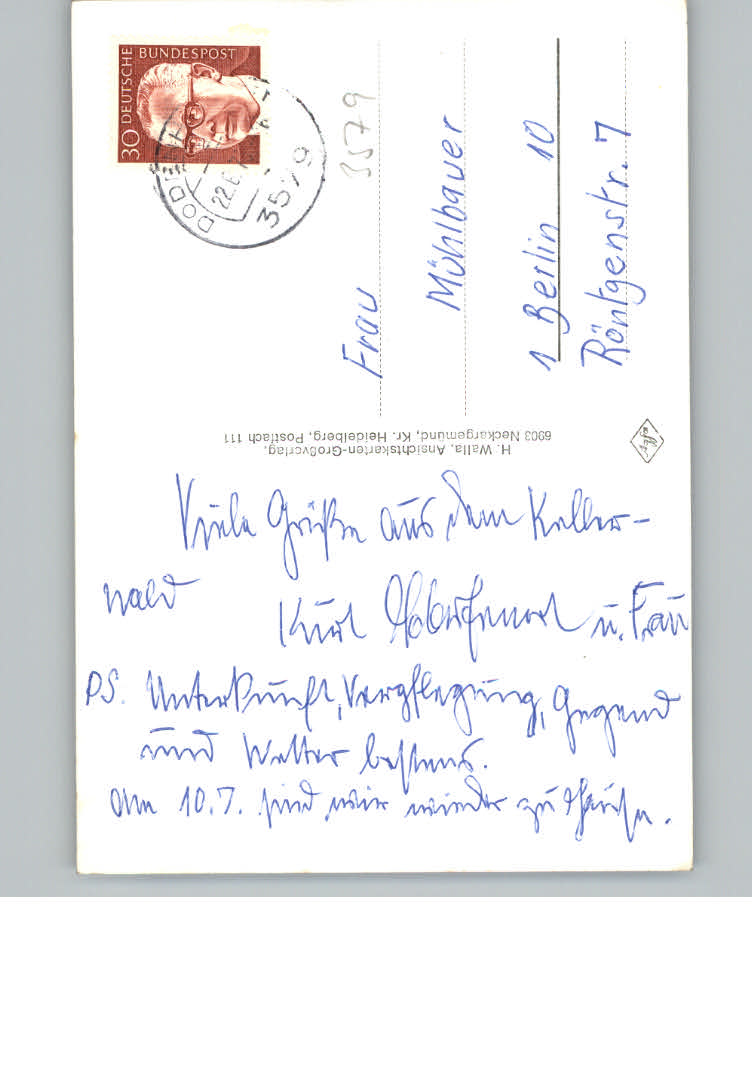 DEUTSCHE BUNDESPOST
30
22.6.
3579
3579
Frau
Mühlbauer
1 Berlin 10
Röntgenstr. 7
H. Walla, Ansichtskarten-Großverlag,
6903 Neckargemünd, Kr. Heidelberg, Postfach 111
Viele Grüße aus dem Keller-
wald
Kurt u. Frau
PS. Unterkunft, Verpflegung, Gegend
und Wetter bestens.
Am 10.7. sind wir wieder zu Hause.